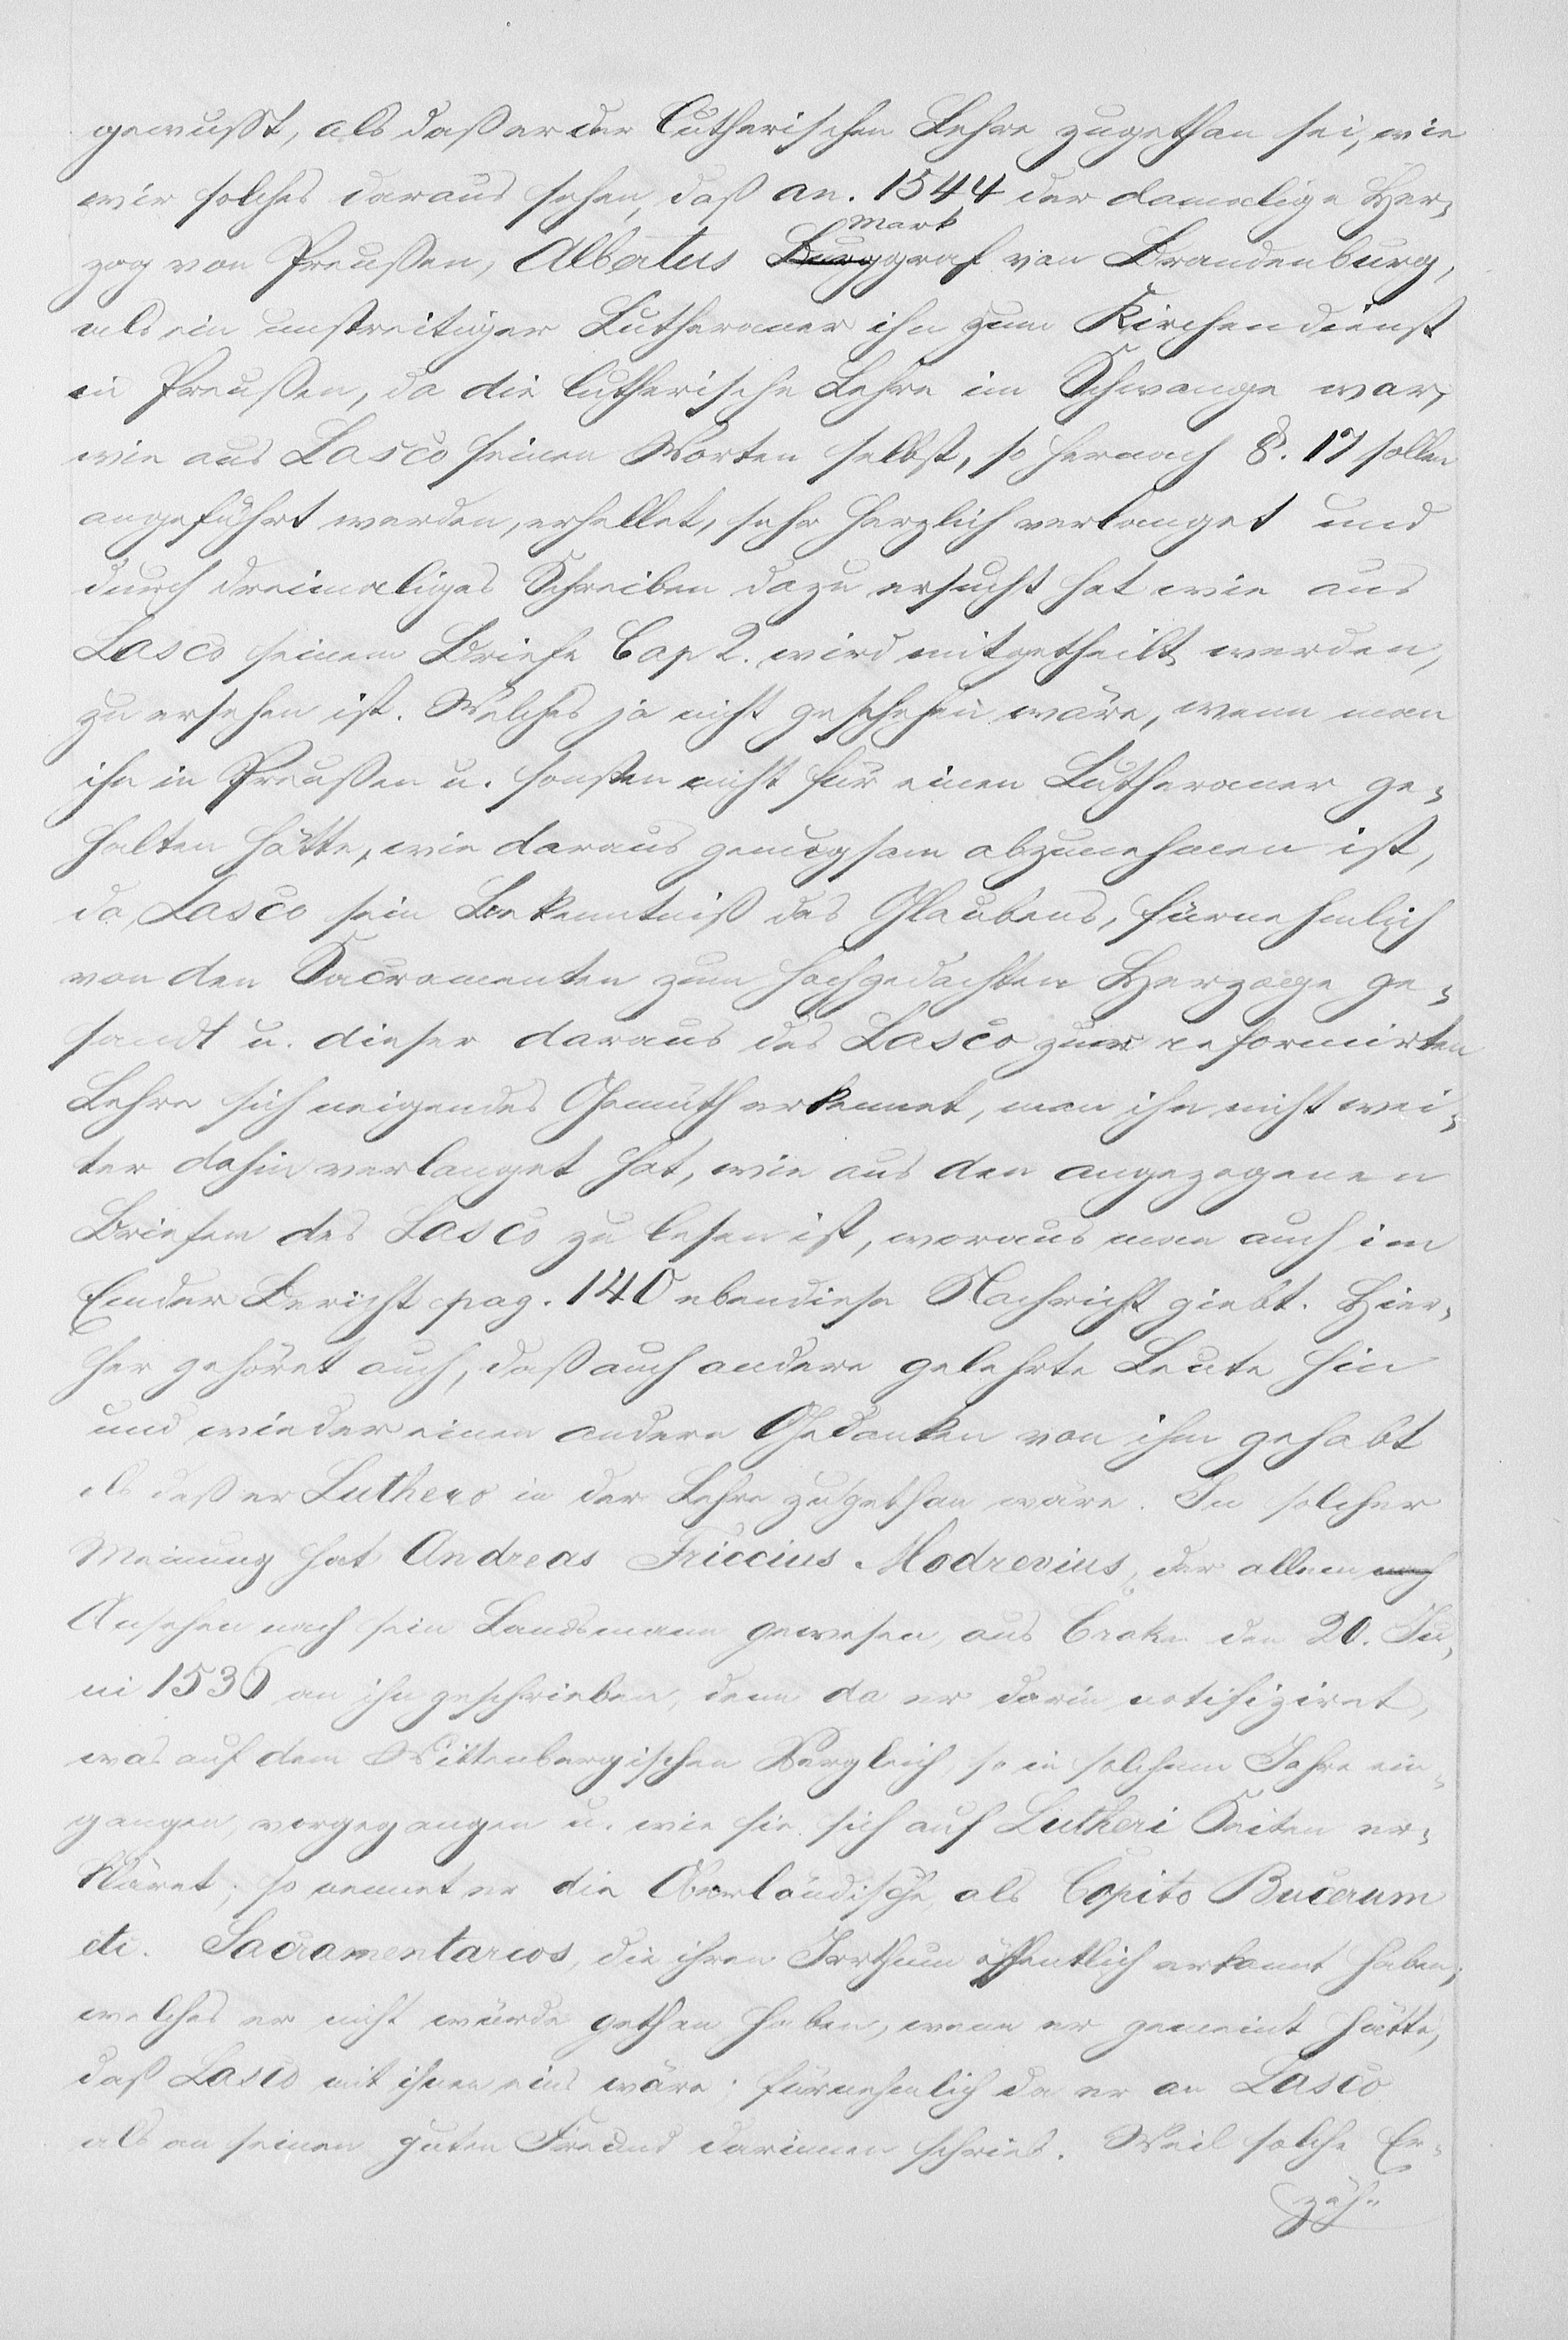 gewußt, als daß er der Lutherischen Lehre zugethan sei, wie
wir solches daraus sehen, daß an. 1544 der damalige Her-
zog von Preußen, Albertus Burggraf Mark von Brandenburg,
als ein unstreitiger Lutheraner ihn zum Kirchendienst
in Preußen, da die lutherische Lehre im Schwange war,
wie aus Lasco seinen Worten selbst, so hernach §. 17 sollen
angeführt werden, erhellet, sehr herzlich verlanget und
durch dreimaliges Schreiben dazu ersucht hat wie aus
Lasco seinem Briefe Cap 2. wird mitgetheilt werden,
zu ersehen ist. Welches ja nicht geschehen wäre, wenn man
ihn in Preußen u. sonsten nicht für einen Lutheraner ge-
halten hätte, wie daraus genugsam abzunehmen ist,
da Lasco sein Bekenntniß des Glaubens, fürnehmlich
von den Sacramenten zum hochgedachten Herzoge ge-
sandt u. dieser daraus des Lasco zur reformirten
Lehre sich neigendes Gemüth erkennet, man ihn nicht wei-
ter dahin verlanget hat, wie aus den angezogenen
Briefen des Lasco zu lesen ist, woraus man auch im
Emder Bericht pag. 140 ebendiese Nachricht giebt. Hier-
her gehöret auch, daß auch andere gelehrte Leute hin
und wieder einen andern Gedanken von ihm gehabt
als daß er Luthero in der Lehre zugethan wäre. In solcher
Meinung hat Andreas Friccius Modrevius, der allem nach
Ansehen nach sein Landsmann gewesen, aus Crakau den 20. Ju-
ni 1536 an ihn geschrieben, denn da er darin notifiziret,
was auf dem Wittenbergischen Vergleich, so in solchem Jahre ein-
gangen, vorgegangen u. wie sie sich auf Lutheri Seiten er-
kläret; so nennet er die Oberländische, als Capito Bucerum
etc. Sacramentarios, die ihren Irrthum öffentlich erkannt haben;
welches er nicht würde gethan haben, wenn er gemeint hätte,
daß Lasco mit ihnen eins wäre; fürnehmlich da er an Lasco
als an seinen guten Freund darinnen schrieb. Weil solche Er-
zäh-